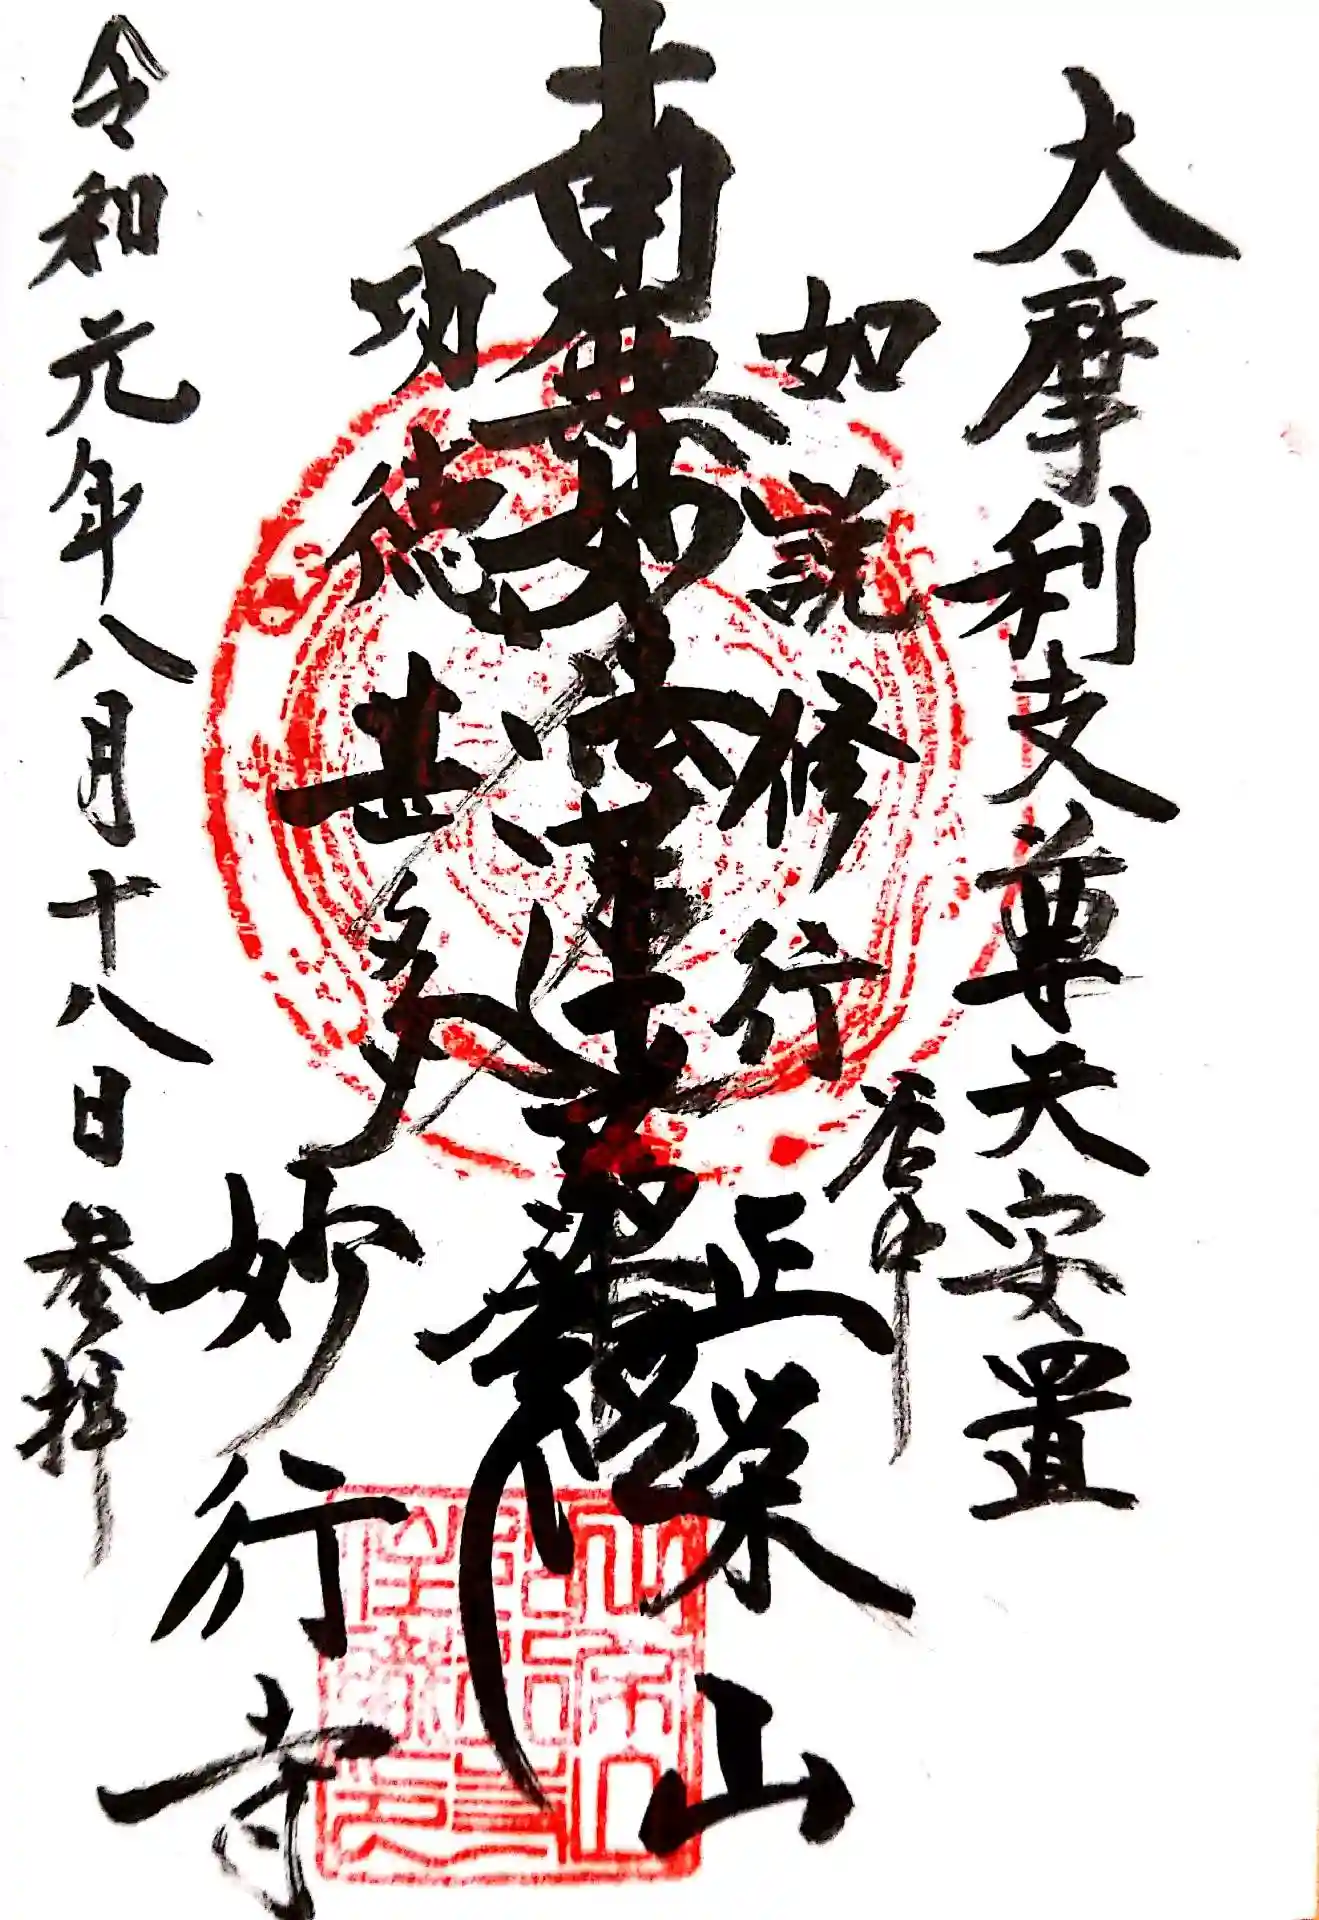 大摩利支尊天安置
如説修行
正栄山
南無妙法蓮華経
功徳甚多
妙行寺
令和元年八月十八日参拝